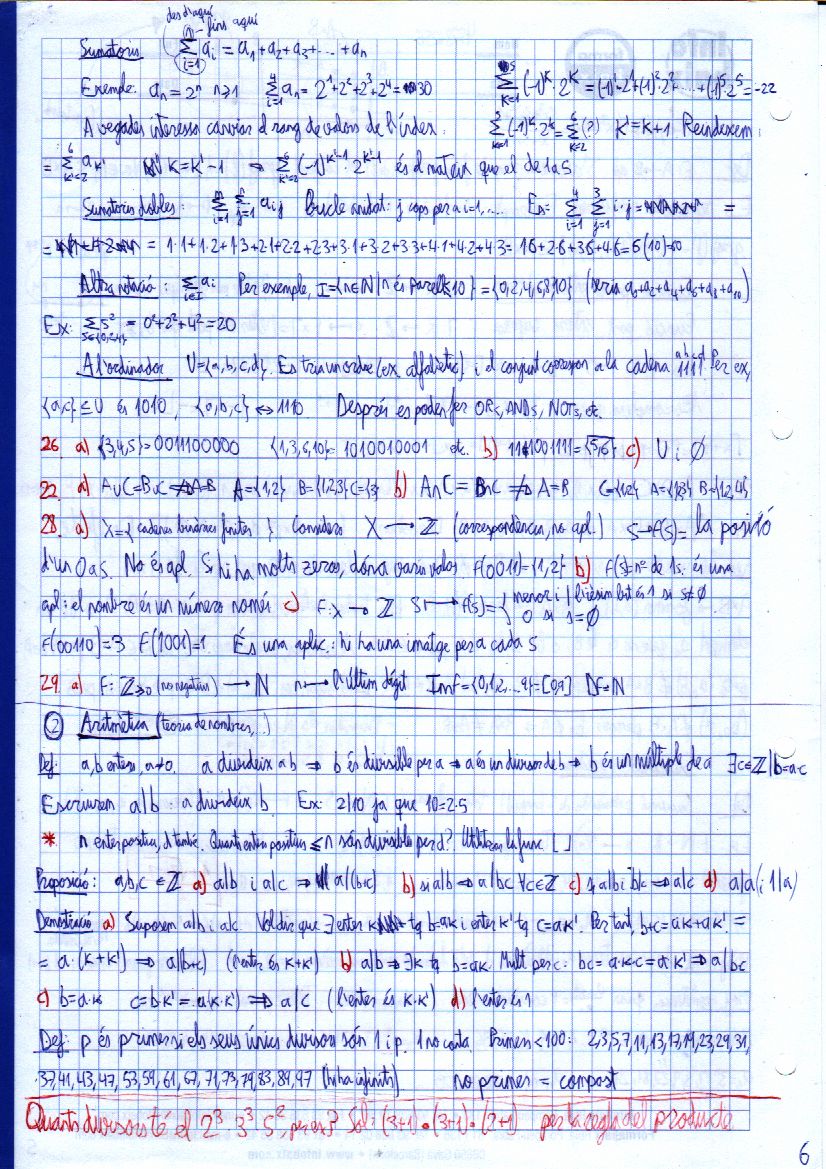 des d'aquí
fins aquí
Sumatoris n ∑ i=1 ai = a1 + a2 + a3 + ... + an
Exemple: an = 2^n n≥1 4 ∑ i=1 an = 2^1+2^2+2^3+2^4 = 30 5 ∑ K=1 (-1)^K · 2^K = (-1)^1·2^1+(-1)^2·2^2+...+(-1)^5·2^5 = -22
A vegades interessa canviar el rang de valors de l'índex. 5 ∑ K=1 (-1)^K·2^K = 6 ∑ K=2 (?) K' = K+1 Reindexem:
= 6 ∑ K'=2 aK' K = K'-1 ⇒ 6 ∑ K'=2 (-1)^K'-1 · 2^K'-1 és el mateix que el de 1 a 5
Sumatoris dobles: m ∑ i=1 n ∑ j=1 aij Bucle anidat: j cops per a i=1,... Ex: 4 ∑ i=1 3 ∑ j=1 i·j = =
= = 1·1+1·2+1·3+2·1+2·2+2·3+3·1+3·2+3·3+4·1+4·2+4·3 = 1·6+2·6+3·6+4·6 = 6(10) = 60
Altra notació: ∑ i∈I ai Per exemple, I = {n∈N | n és parell ≤10} = {0,2,4,6,8,10} (seria a0+a2+a4+a6+a8+a10)
Ex: ∑ S∈{0,2,4} S^2 = 0^2+2^2+4^2 = 20
A l'ordinador U={a,b,c,d}. Es tria un ordre (ex. alfabètic) i el conjunt correspon a la cadena abcd 1111. Per ex,
{a,c} ⊆ U és 1010, {a,b,c} ⇔ 1110 Després es poden fer ORs, ANDs, NOTs, etc.
26 a) {3,4,5} = 0011100000 {1,3,6,10} = 1010010001 etc. b) 1111001111 = {5,6} c) U i Ø
22 a) A∪C = B∪C ⇏ A=B A={1,2} B={1,2,3} C={3} b) A∩C = B∩C ⇏ A=B C={1,2} A={1,2,3} B={1,2,4}
28 a) X = { cadenes binàries finites } Considero X → Z (correspondència, no apl.) S→f(s) = la posició
d'un 0 a S. No és apl. Si hi ha molts zeros, dóna varis valors f(0011) = {1,2} b) f(s) = nº de 1s: és una
apl: el nombre és un número només c) F: X → Z S ↦ f(s) = { menor i | l'ièsim bit és 1 si s≠Ø
0 si s=Ø
f(00110) = 3 f(1001) = 1. És una aplic.: hi ha una imatge per a cada S
29 a) F: Z≥0 (no negatius) → N n ↦ l'últim dígit Imf = {0,1,2,...9} = [0,9] Df = N
② Aritmètica (teoria de nombres,...)
Def: a,b enters, a≠0. a divideix a b ⇒ b és divisible per a ⇒ a és un divisor de b ⇒ b és un múltiple de a ∃c∈Z | b=a·c
Escriurem a|b : a divideix b. Ex: 2|10 ja que 10=2·5
* n enter positiu, d també. Quants enters positius ≤n són divisibles per d? Utilitzar la func ⌊ ⌋
Proposició: a,b,c ∈ Z a) a|b i a|c ⇒ a|(b+c) b) si a|b ⇒ a|bc ∀c∈Z c) si a|b i b|c ⇒ a|c d) a|a (i 1|a)
Demostració a) Suposem a|b i a|c. Vol dir que ∃ enter K tq b=aK i enter K' tq c=aK'. Per tant, b+c = aK+aK' =
= a·(K+K') ⇒ a|(b+c) (l'enter és K+K') b) a|b ⇒ ∃K tq b=aK. Mult per c: bc = a·K·c = aK' ⇒ a|bc
c) b=a·K c=b·K' = a(K·K') ⇒ a|c (l'enter és K·K') d) l'enter és 1
Def: p és primer si els seus únics divisors són 1 i p. 1 no conta. Primers <100: 2,3,5,7,11,13,17,19,23,29,31,
37,41,43,47,53,59,61,67,71,73,79,83,89,97 (hi ha infinits) no primer = compost
Quants divisors té el 2^3·3^3·5^2, per ex? Sol: (3+1)·(3+1)·(2+1) per la regla del producte
6